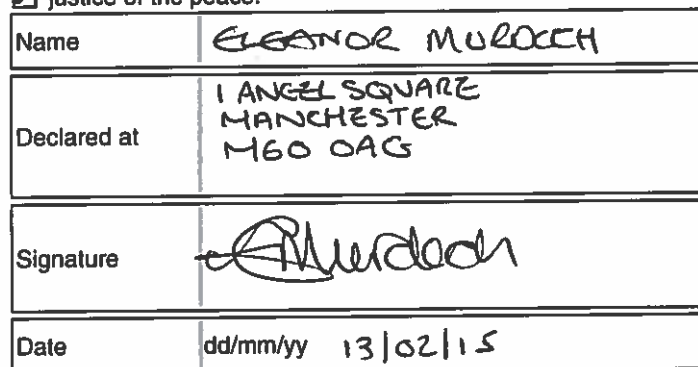 justice of the peace.
Name ELEANOR MURDOCH
Declared at 1 ANGEL SQUARE
MANCHESTER
M60 0AG
Signature EMurdoch
Date dd/mm/yy 13/02/15